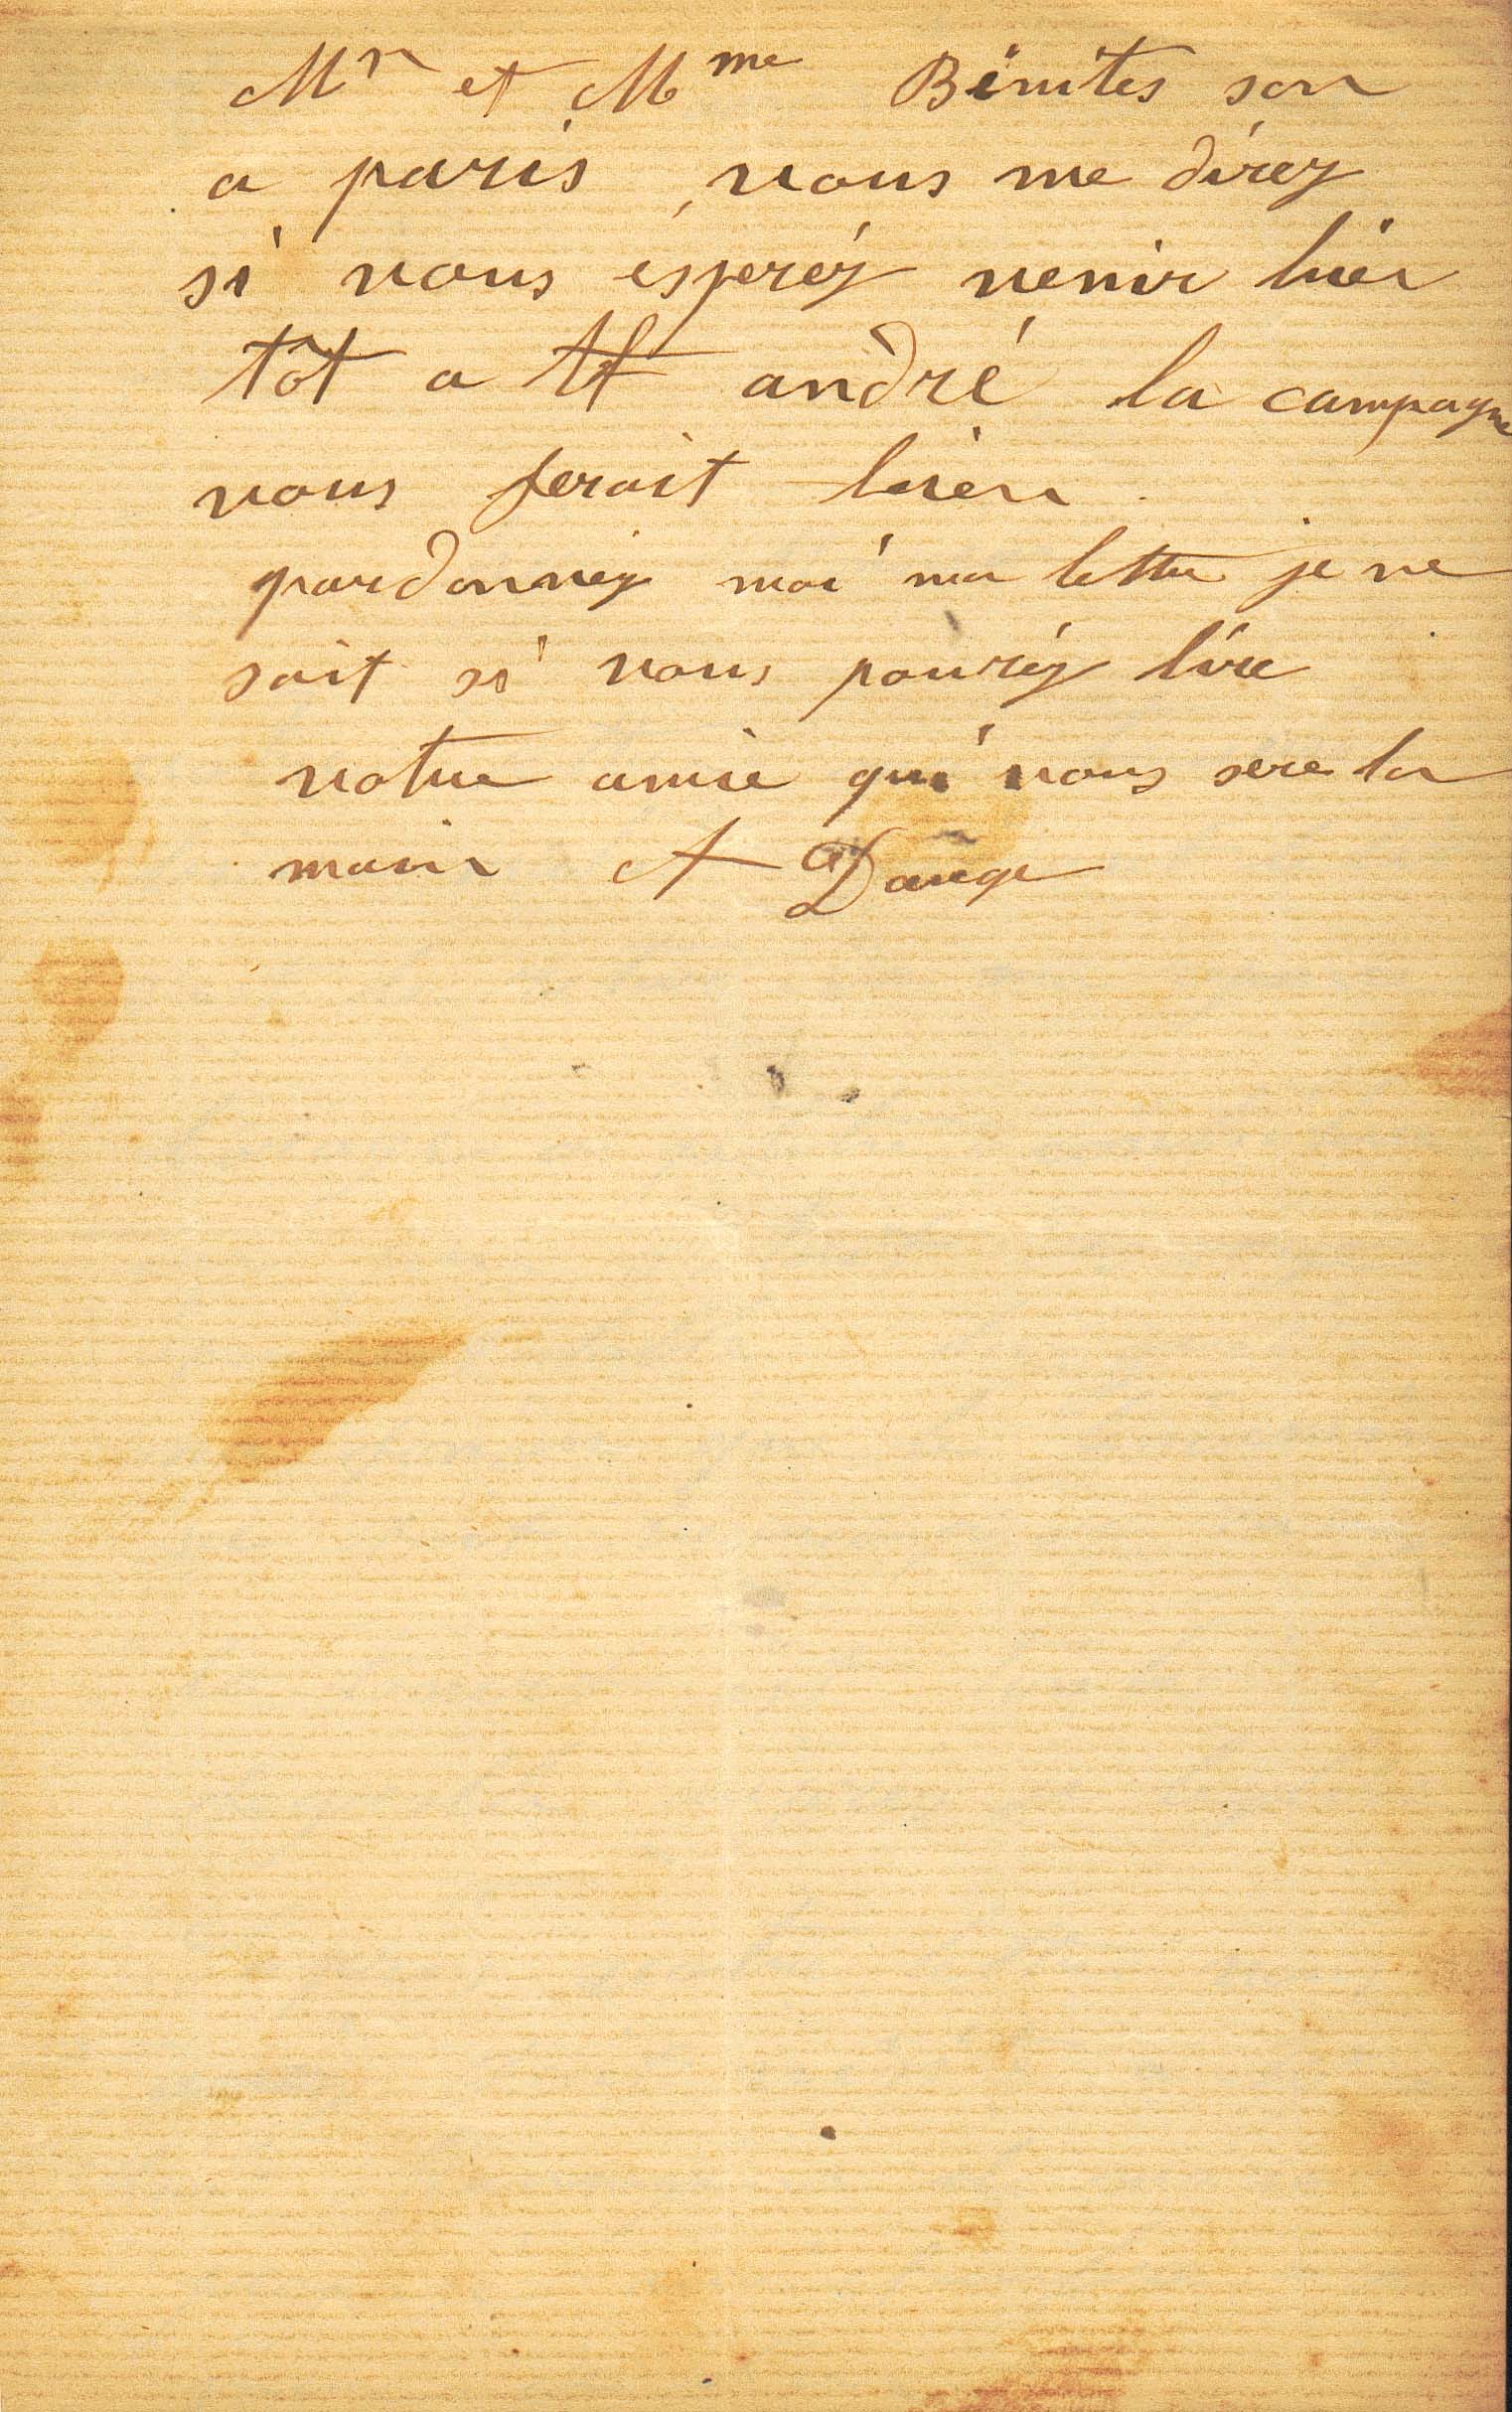 Mr et Mme Bénites son
a paris, vous me direz
si vous espéréz venir bien
tôt a St andré la campagne
vous ferait bien.
pardonnéz moi ma lettre je ne
sait si vous pouréz lire
votre amie qui vous sere la
main A Dauge